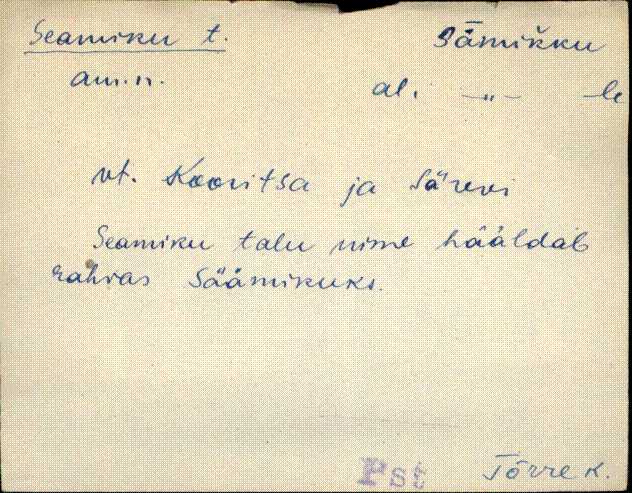 Seamiku t. Sämikku
am.n. al. —„— -le
vt. Kooritsa ja Särevi
Seamiku talu nime hääldab
rahvas Säämikuks.
Pst Tõrre k.